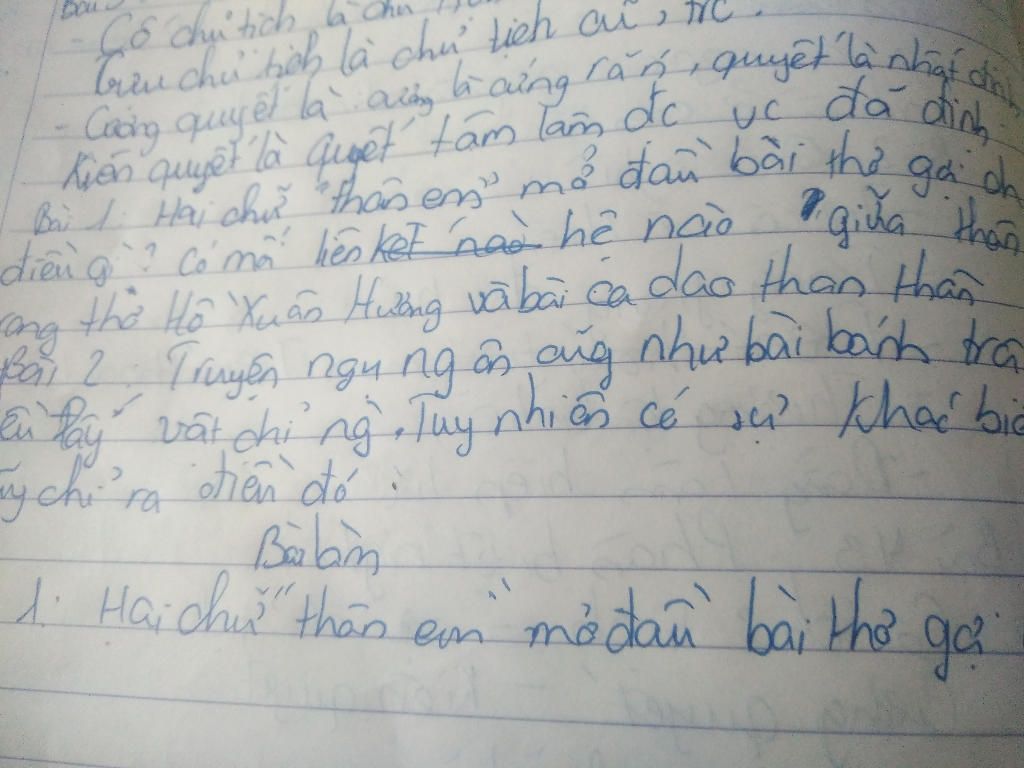 - Cố chủ tịch là chủ
Cựu chủ tịch là chủ tịch cũ, trc.
- Cương quyết là cương là cứng rắn, quyết là nhất định
Kiên quyết là quyết tâm làm đc vc đã định
Bài 1. Hai chữ "thân em" mở đầu bài thơ gợi ch
điều gì? Có mối liên hệ nào giữa thân
ong thơ Hồ Xuân Hương và bài ca dao than thân
Bài 2. Truyện ngụ ngôn cũng như bài bánh trô
ều lấy vật chỉ ng. Tuy nhiên có sự khác biệ
ãy chỉ ra điều đó.
Bài làm
1. Hai chữ "thân em" mở đầu bài thơ gợi